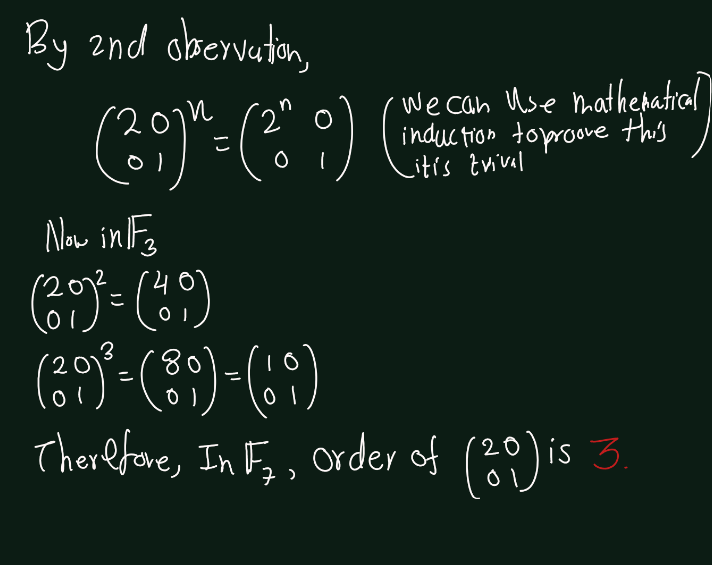 By 2nd observation,
(2 0 0 1)^n = (2^n 0 0 1) (we can use mathematical induction to proove this it is trival)
Now in 𝔽₃
(2 0 0 1)² = (4 0 0 1)
(2 0 0 1)³ = (8 0 0 1) = (1 0 0 1)
Therefore, In 𝔽₇, order of (2 0 0 1) is 3.